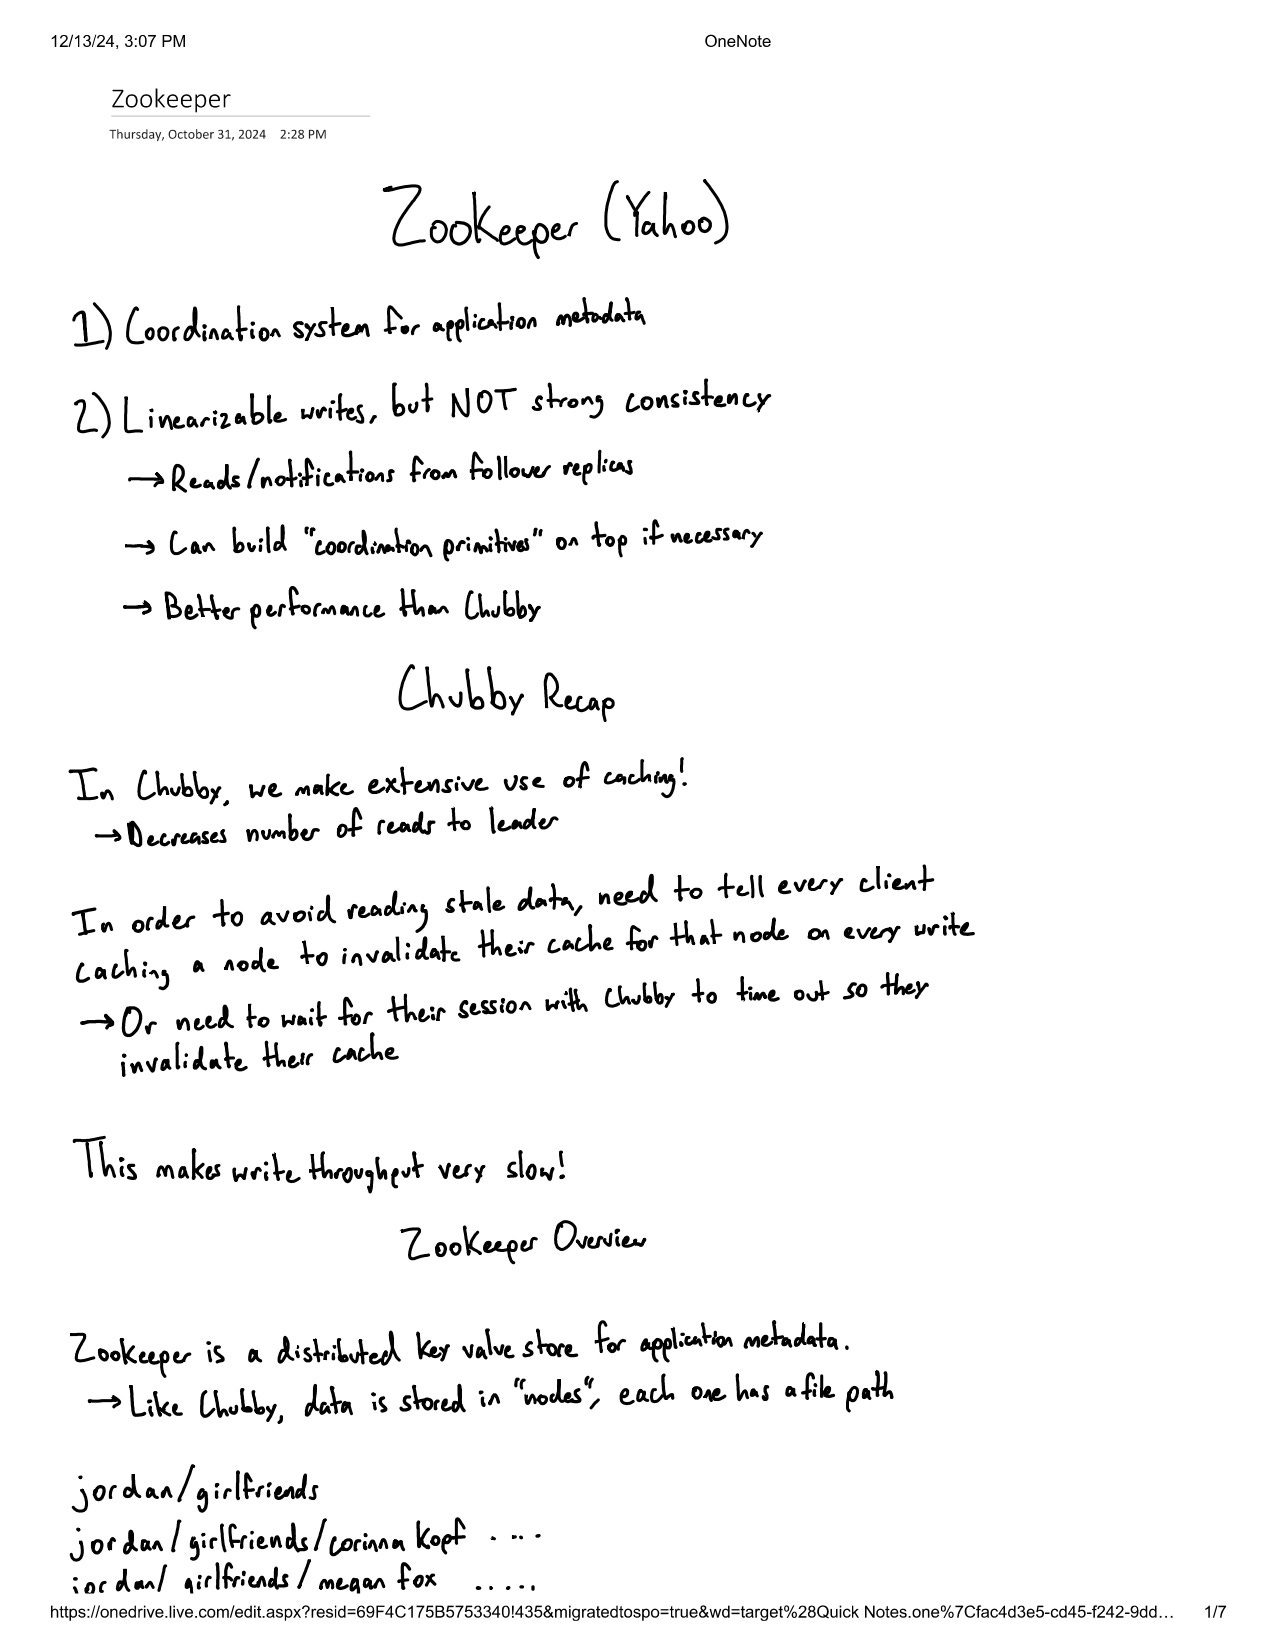 12/13/24, 3:07 PM OneNote
Zookeeper
Thursday, October 31, 2024 2:28 PM
ZooKeeper (Yahoo)
1) Coordination system for application metadata
2) Linearizable writes, but NOT strong consistency
→ Reads/notifications from follower replicas
→ Can build "coordination primitives" on top if necessary
→ Better performance than Chubby
Chubby Recap
In Chubby, we make extensive use of caching!
→ Decreases number of reads to leader
In order to avoid reading stale data, need to tell every client
caching a node to invalidate their cache for that node on every write
→ Or need to wait for their session with Chubby to time out so they
invalidate their cache
This makes write throughput very slow!
ZooKeeper Overview
ZooKeeper is a distributed key value store for application metadata.
→ Like Chubby, data is stored in "nodes", each one has a file path
jordan/girlfriends
jordan/girlfriends/corinna kopf ....
jordan/girlfriends/megan fox .....
https://onedrive.live.com/edit.aspx?resid=69F4C175B5753340!435&migratedtospo=true&wd=target%28Quick Notes.one%7Cfac4d3e5-cd45-f242-9dd… 1/7